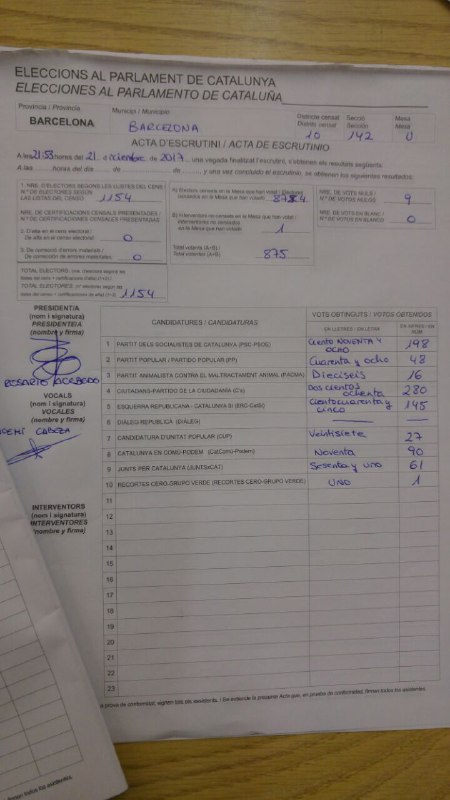 ELECCIONS AL PARLAMENT DE CATALUNYA
ELECCIONES AL PARLAMENTO DE CATALUÑA
Provincia / Provincia
BARCELONA
Municipi / Municipio
BARCELONA
Districte censal
Distrito censal
10
Secció
Sección
142
Mesa
Mesa
U
ACTA D'ESCRUTINI / ACTA DE ESCRUTINIO
A les 21:53 hores del 21 de diciembre de 2017, una vegada finalitzat l'escrutini, s'obtenen els resultats següents:
A las horas del día de de , y una vez concluido el escrutinio, se obtienen los siguientes resultados:
1. NRE. D'ELECTORS SEGONS LES LLISTES DEL CENS /
N.º DE ELECTORES SEGÚN
LAS LISTAS DEL CENSO: 1154
NRE. DE CERTIFICACIONS CENSALS PRESENTADES /
N.º DE CERTIFICACIONES CENSALES PRESENTADAS
2. D'alta en el cens electoral /
De alta en el censo electoral: 0
3. De correcció d'errors materials /
De corrección de errores materiales: 0
TOTAL ELECTORS
TOTAL ELECTORES
1154
A) Electors censats en la Mesa que han votat / Electores
censados en la Mesa que han votado 874
B) Interventors no censats
en la Mesa que han votat /
Interventores no censados
en la Mesa que han votado 1
Total votants (A+B)
Total votantes (A+B) 875
NRE. DE VOTS NULS /
N.º DE VOTOS NULOS 9
NRE. DE VOTS EN BLANC /
N.º DE VOTOS EN BLANCO 0
PRESIDENTIA
(nom i signatura)
PRESIDENTE/A
(nombre y firma)
ROSARIO ACEBEDO
VOCALS
(nom i signatura)
VOCALES
(nombre y firma)
NOEMI CABEZA
INTERVENTORS
(nom i signatura)
INTERVENTORES
(nombre y firma)
CANDIDATURES / CANDIDATURAS
VOTS OBTINGUTS / VOTOS OBTENIDOS
EN LLETRES / EN LETRA
EN XIFRES / EN NÚM
1 PARTIT DELS SOCIALISTES DE CATALUNYA (PSC-PSOE) Ciento NOVENTA Y OCHO 198
2 PARTIT POPULAR / PARTIDO POPULAR (PP) Cuarenta y ocho 48
3 PARTIT ANIMALISTA CONTRA EL MALTRACTAMENT ANIMAL (PACMA) Dieciseis 16
4 CIUTADANS-PARTIDO DE LA CIUDADANÍA (C's) Dos cientos ochenta 280
5 ESQUERRA REPUBLICANA - CATALUNYA SÍ (ERC-CatSí) Cientocuarenta y cinco 145
6 DIÀLEG REPUBLICÀ (DIÀLEG)
7 CANDIDATURA D'UNITAT POPULAR (CUP) Veintisiete 27
8 CATALUNYA EN COMÚ-PODEM (CatComú-Podem) Noventa 90
9 JUNTS PER CATALUNYA (JUNTSxCAT) Sesenta y uno 61
10 RECORTES CERO-GRUPO VERDE (RECORTES CERO-GRUPO VERDE) UNO 1
11
12
13
14
15
16
17
18
19
20
21
22
23